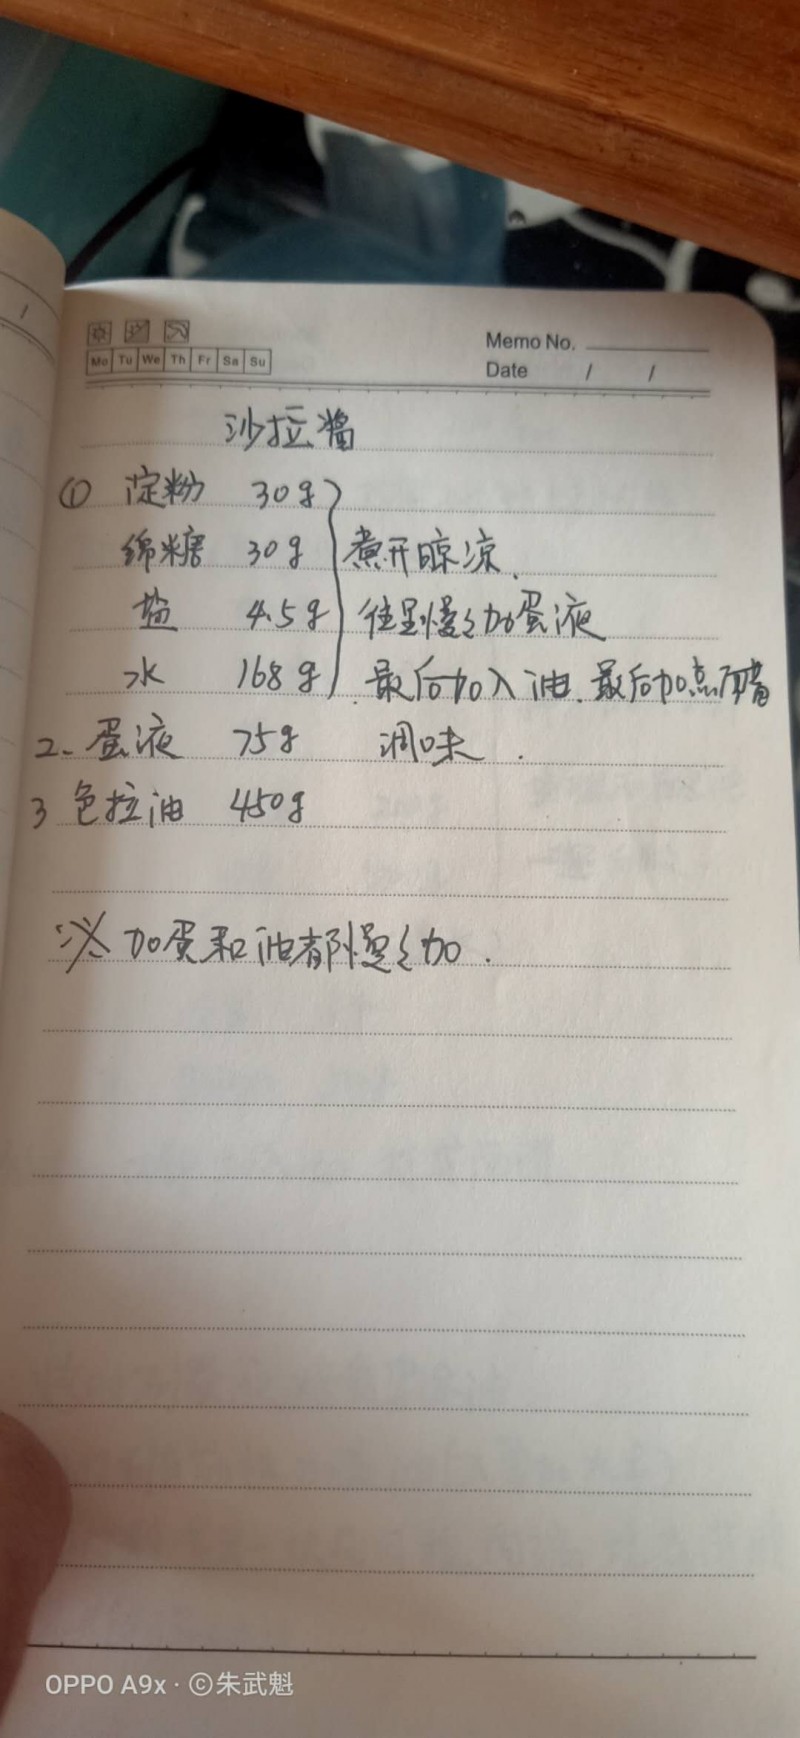 Memo No.
Mo Tu We Th Fr Sa Su
Date / /
沙拉酱
① 淀粉 30g
绵糖 30g 煮开晾凉.
盐 4.5g 往里慢慢加蛋液
水 168g . 最后加入油. 最后加点白醋
2. 蛋液 75g 调味.
3 色拉油 450g
※ 加蛋和油都慢慢加.
OPPO A9x · ©朱武魁